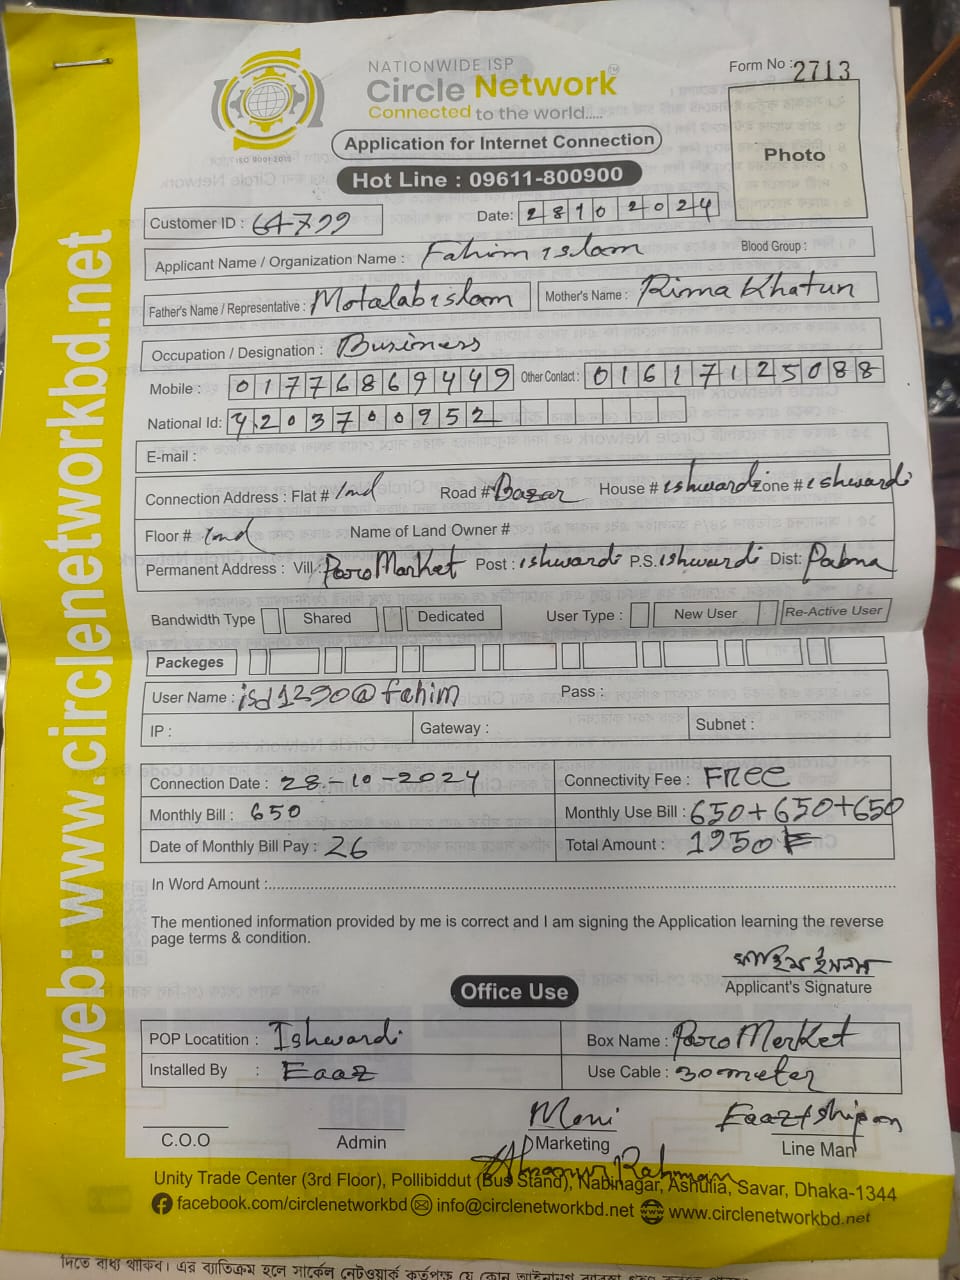 NATIONWIDE ISP
Circle Network™
Connected to the world.....
ISO 9001:2015
Form No : 2713
Photo
Application for Internet Connection
Hot Line : 09611-800900
Customer ID : 64799
Date: 28102024
Applicant Name / Organization Name : Fahim islam
Blood Group :
Father's Name / Representative : Motalab islam
Mother's Name : Rima Khatun
Occupation / Designation : Business
Mobile : 01776869449
Other Contact : 01617125088
National Id: 4203700952
E-mail :
Connection Address : Flat # Road # Bazar House # ishwardi Zone # ishwardi
Floor # Name of Land Owner #
Permanent Address : Vill : Poro Market Post : ishwardi P.S. ishwardi Dist: Pabna
Bandwidth Type Shared Dedicated User Type : New User Re-Active User
Packeges
User Name : isd1290@fahim Pass :
IP : Gateway : Subnet :
Connection Date : 28-10-2024 Connectivity Fee : FRee
Monthly Bill : 650 Monthly Use Bill : 650+650+650
Date of Monthly Bill Pay : 26 Total Amount : 1950
In Word Amount :
The mentioned information provided by me is correct and I am signing the Application learning the reverse
page terms & condition.
ফাহিম ইসলাম
Applicant's Signature
Office Use
POP Locatition : Ishwardi Box Name : Poro Market
Installed By : Eaaz Use Cable : 30 meter
C.O.O
Admin
Moni
Marketing
Eaaz+Shipon
Line Man
Rahman
Unity Trade Center (3rd Floor), Pollibiddut (Bus Stand), Nabinagar, Ashulia, Savar, Dhaka-1344
facebook.com/circlenetworkbd info@circlenetworkbd.net www.circlenetworkbd.net
web: www.circlenetworkbd.net